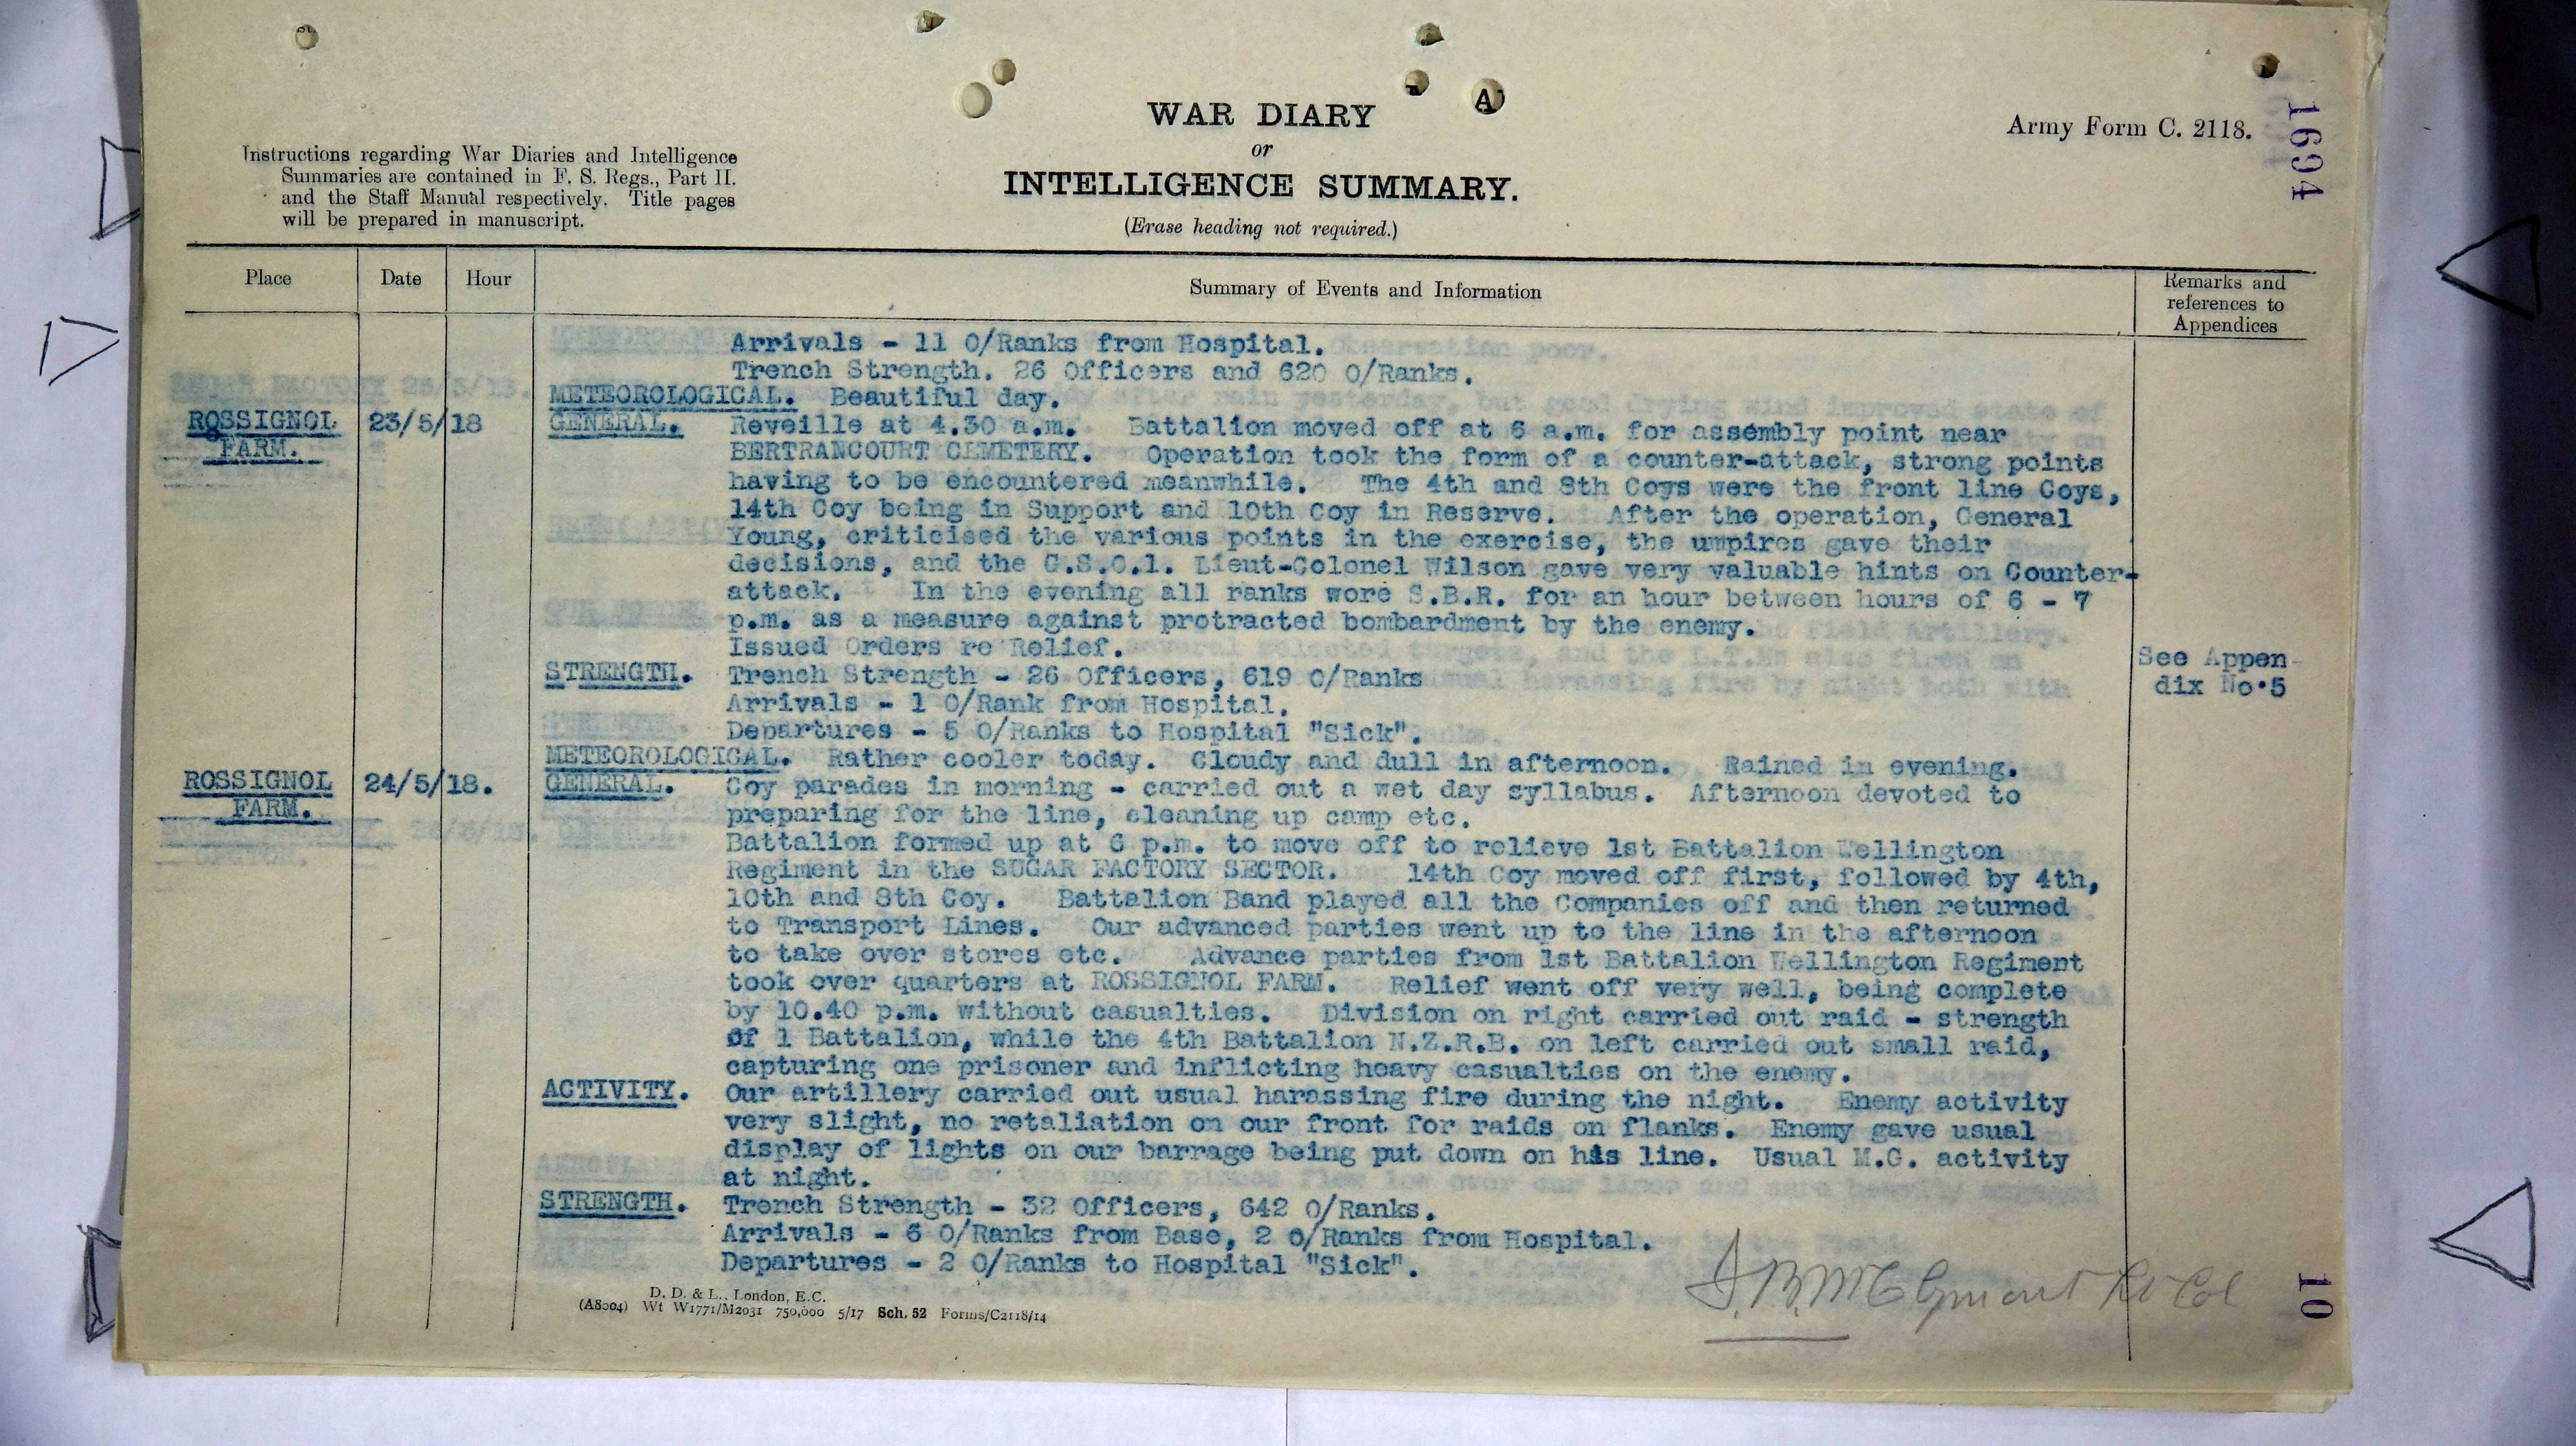 WAR DIARY
or
INTELLIGENCE SUMMARY.
(Erase heading not required.)
Army Form C. 2118.
1694
Instructions regarding War Diaries and Intelligence
Summaries are contained in F. S. Regs., Part II.
and the Staff Manual respectively. Title pages
will be prepared in manuscript.
Place Date Hour Summary of Events and Information
Remarks and
references to
Appendices
Arrivals - 11 O/Ranks from Hospital.
Trench Strength. 26 Officers and 620 O/Ranks.
METEOROLOGICAL. Beautiful day.
ROSSIGNOL 23/5/18 GENERAL. Reveille at 4.30 a.m. Battalion moved off at 6 a.m. for assembly point near
FARM. BERTRANCOURT CEMETERY. Operation took the form of a counter-attack, strong points
having to be encountered meanwhile. The 4th and 8th Coys were the front line Coys,
14th Coy being in Support and 10th Coy in Reserve. After the operation, General
Young, criticised the various points in the exercise, the umpires gave their
decisions, and the G.S.O.1. Lieut-Colonel Wilson gave very valuable hints on Counter-
attack. In the evening all ranks wore S.B.R. for an hour between hours of 6 - 7
p.m. as a measure against protracted bombardment by the enemy.
Issued Orders re Relief.
See Appen-
dix No.5
STRENGTH. Trench Strength - 26 Officers, 619 O/Ranks
Arrivals - 1 O/Rank from Hospital.
Departures - 5 O/Ranks to Hospital "Sick".
METEOROLOGICAL. Rather cooler today. Cloudy and dull in afternoon. Rained in evening.
ROSSIGNOL 24/5/18. GENERAL. Coy parades in morning - carried out a wet day syllabus. Afternoon devoted to
FARM. preparing for the line, cleaning up camp etc.
Battalion formed up at 6 p.m. to move off to relieve 1st Battalion Wellington
Regiment in the SUGAR FACTORY SECTOR. 14th Coy moved off first, followed by 4th,
10th and 8th Coy. Battalion Band played all the Companies off and then returned
to Transport Lines. Our advanced parties went up to the line in the afternoon
to take over stores etc. Advance parties from 1st Battalion Wellington Regiment
took over quarters at ROSSIGNOL FARM. Relief went off very well, being complete
by 10.40 p.m. without casualties. Division on right carried out raid - strength
of 1 Battalion, while the 4th Battalion N.Z.R.B. on left carried out small raid,
capturing one prisoner and inflicting heavy casualties on the enemy.
ACTIVITY. Our artillery carried out usual harassing fire during the night. Enemy activity
very slight, no retaliation on our front for raids on flanks. Enemy gave usual
display of lights on our barrage being put down on his line. Usual M.G. activity
at night.
STRENGTH. Trench Strength - 32 Officers, 642 O/Ranks.
Arrivals - 6 O/Ranks from Base, 2 O/Ranks from Hospital.
Departures - 2 O/Ranks to Hospital "Sick".
Lt Col
10
D. D. & L., London, E.C.
(A8004) Wt W1771/M2031 750,000 5/17 Sch. 52 Forms/C2118/14